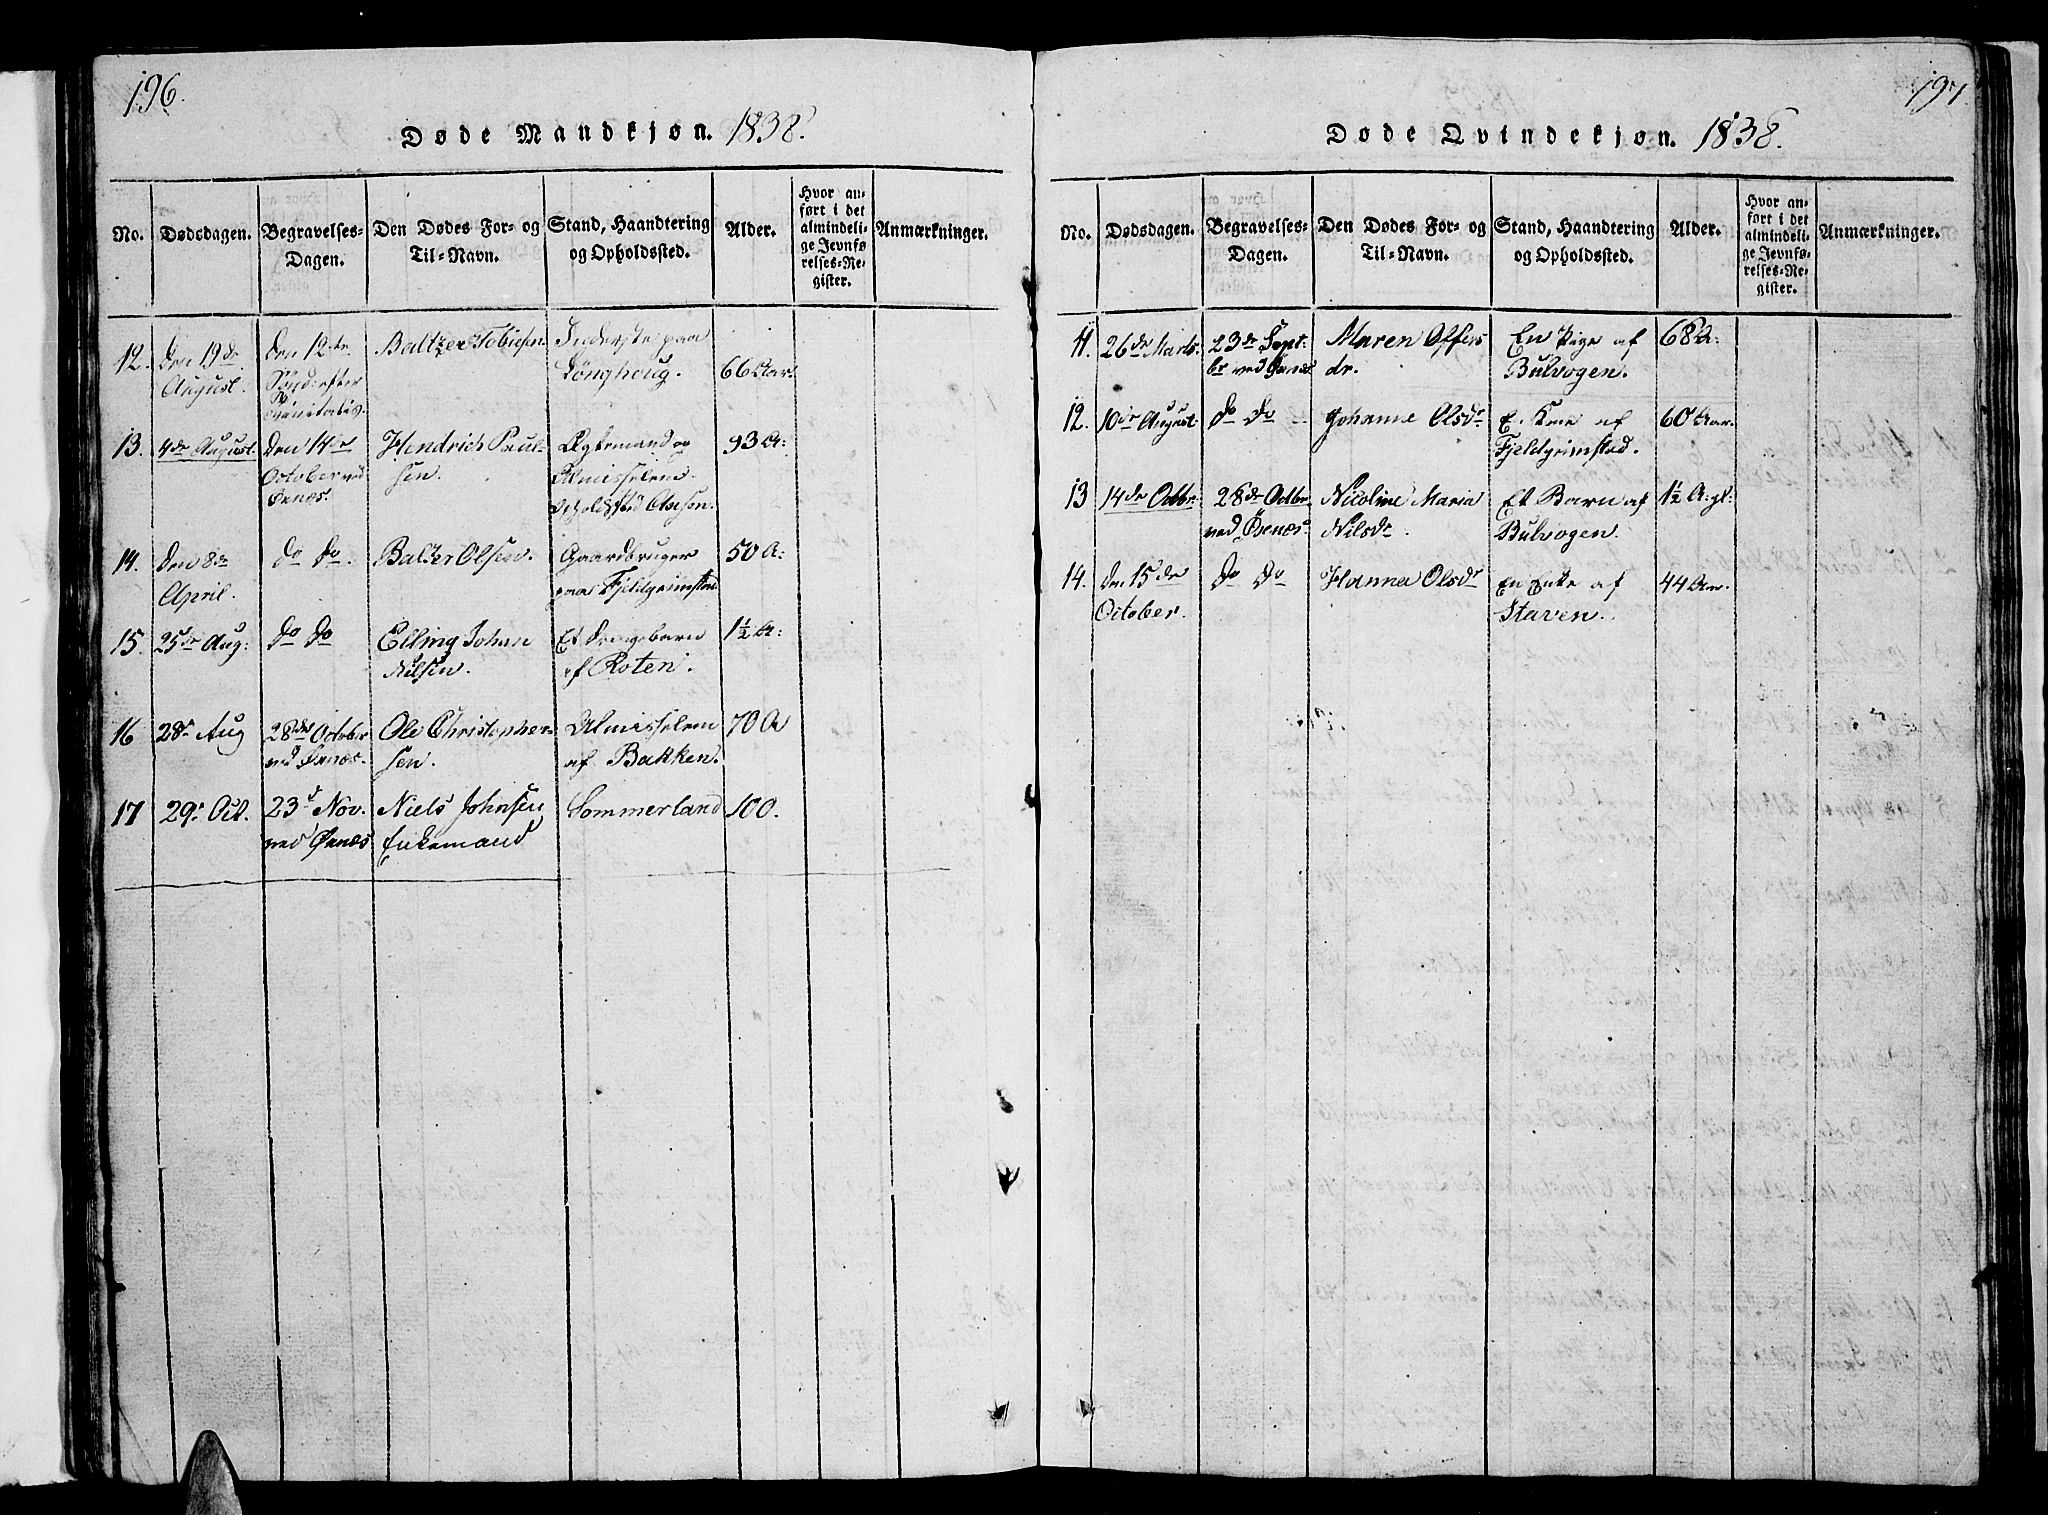 196.
Døde Mandkjøn. 1838.
No.
Dødsdagen.
Begravelses-
Dagen.
Den Dødes For- og
Til-Navn.
Stand, Haandtering
og Opholdssted.
Alder.
Hvor an-
ført i det
almindeli-
ge Jevnfø-
relses-Re-
gister.
Anmærkninger.
12. Den 19de
August.
Den 12te
Synd: efter
Trinitatis.
Baltzer Tobiesen
Inderste paa
Longhoug.
66 Aar.
13. 4de August.
Den 14de
October ved
Ørnæs.
Hendrich Paul-
sen.
Ægtemand og
Almisselem
Olsøen.
93 A:
14. Den 8de
April.
do do.
Baltzer Olsen.
Gaardbruger
paa Fjeldgrimstad
50 A:
15. 25de Aug:
do do
Elling Johan
Nilsen.
Et Drengebarn
af Roten.
1½ A:
16 28de Aug
28de October
ved Ørnæs.
Ole Christopher-
sen.
Almisselem
af Bakken.
70 A
17 29. Oct.
23d Nov.
ved Ørnæs
Niels Johnsen
Enkemand
Sommerland
100.
197.
Døde Qvindekjøn. 1838.
No.
Dødsdagen.
Begravelses-
Dagen.
Den Dødes For- og
Til-Navn.
Stand, Haandtering
og Opholdssted.
Alder.
Hvor an-
ført i det
almindeli-
ge Jevnfø-
relses-Re-
gister.
Anmærkninger.
11. 26de Marts.
23de Sept-
br ved Ørnæs
Maren Offers
dr.
En Pige af
Bulvogen.
68 A:
12. 10de August
do do
Johanne Olsdr
E. Kone af
Fjeldgrimstad.
60 Aar.
13 14de Octbr.
28de Octbr.
ved Ørnæs.
Nicoline Maria
Nilsdr.
Et Barn af
Bulvogen.
1½ A: gl.
14. Den 15de
October.
do do
Hanna Olsdr
En Enke af
Staven.
44 Aar.